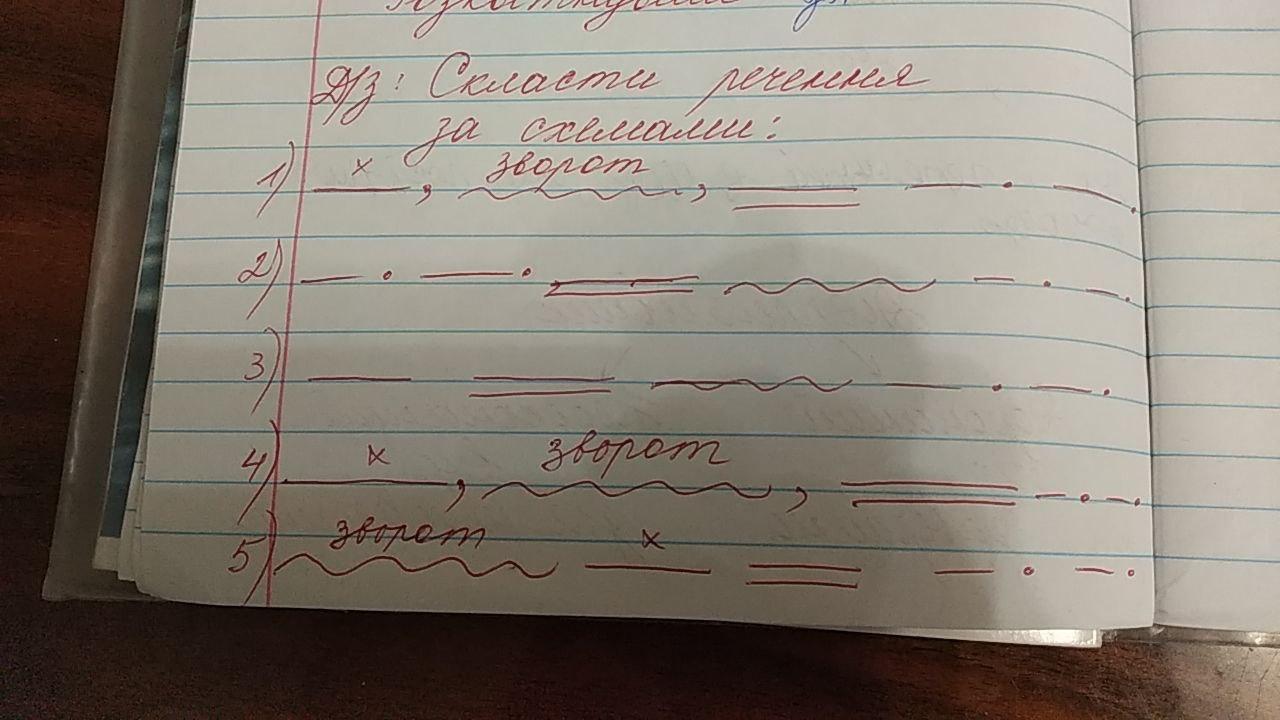 Д/з: Скласти речення
за схемами:
1) х, зворот,
2)
3)
4) х, зворот,
5) зворот х